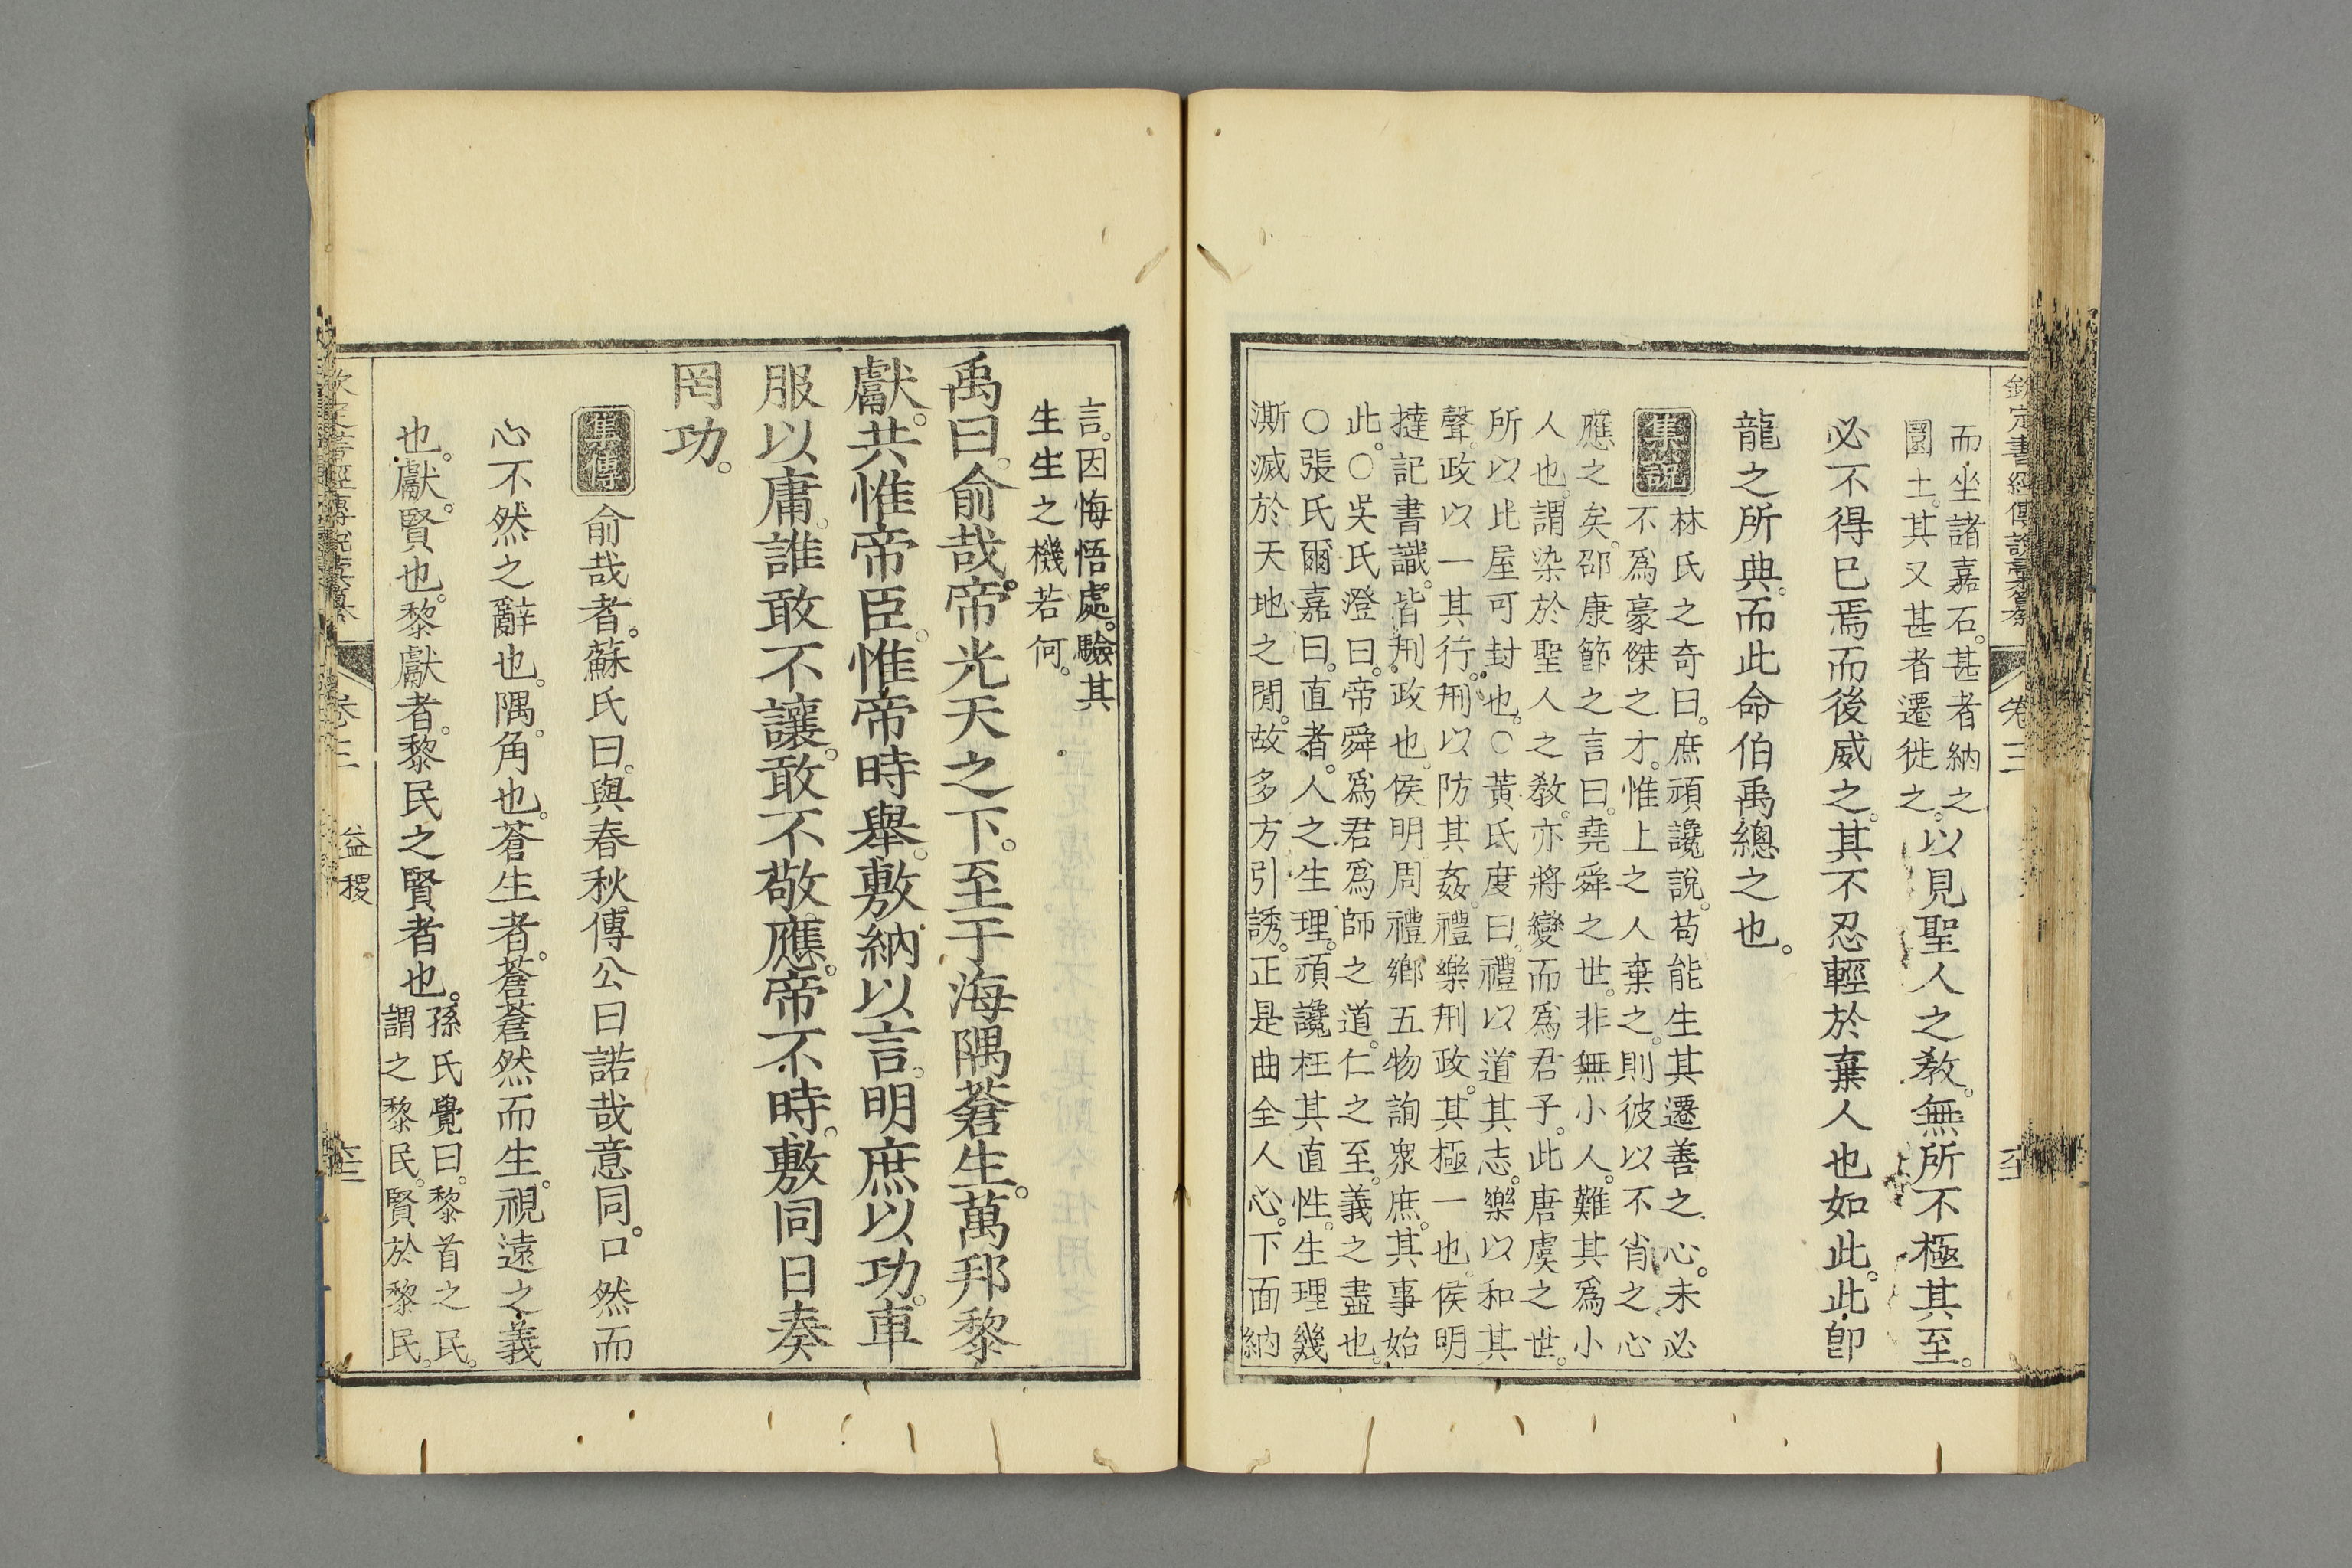 欽定書經傳說彙纂 卷三 
而坐諸嘉石。甚者納之
圜土。其又甚者遷徙之。
以見聖人之教。無所不極其至。
必不得已焉而後威之。其不忍輕於棄人也如此。此卽
龍之所典。而此命伯禹總之也。
集說
林氏之奇曰。庶頑讒說。苟能生其遷善之心。未必
不爲豪傑之才。惟上之人棄之。則彼以不肖之心
應之矣。邵康節之言曰。堯舜之世。非無小人。難其爲小
人也。謂染於聖人之教。亦將變而爲君子。此唐虞之世。
所以比屋可封也。○黃氏度曰。禮以道其志。樂以和其
聲。政以一其行。刑以防其姦。禮樂刑政。其極一也。侯明
撻記書識。皆刑政也。侯明周禮鄉五物詢衆庶。其事始
此。○吳氏澄曰。帝舜爲君爲師之道。仁之至。義之盡也。
○張氏爾嘉曰。直者。人之生理。頑讒枉其直性。生理幾
澌滅於天地之閒。故多方引誘。正是曲全人心。下面納
言。因悔悟處。驗其
生生之機若何。
禹曰。俞哉。帝光天之下。至于海隅蒼生。萬邦黎
獻。共惟帝臣。惟帝時舉。敷納以言。明庶以功。車
服以庸。誰敢不讓。敢不敬應。帝不時。敷同日奏
罔功。
集傳
俞哉者。蘇氏曰。與春秋傳公曰諾哉意同。口然而
心不然之辭也。隅。角也。蒼生者。蒼蒼然而生。視遠之義
也。獻。賢也。黎獻者。黎民之賢者也。
孫氏覺曰。黎首之民。
謂之黎民。賢於黎民。
欽定書經傳說彙纂 卷三 益稷